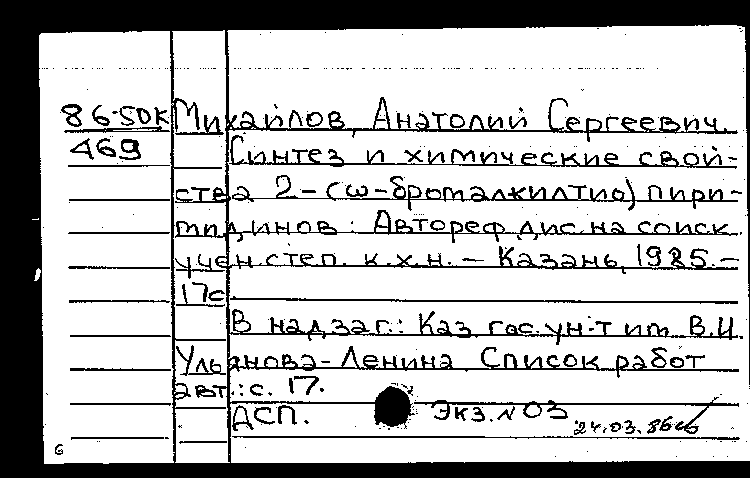 86-50К Михайлов, Анатолий Сергеевич.
469 Синтез и химические свой-
ства 2-(ω-бромалкилтио) пири-
мидинов: Автореф. дис. на соиск.
учен. степ. к.х.н. - Казань, 1985. -
17с.
В надзаг.: Каз. гос. ун-т им. В.И.
Ульянова-Ленина. Список работ
авт.: с. 17.
ДСП. Экз. N 03
24.03.86
6